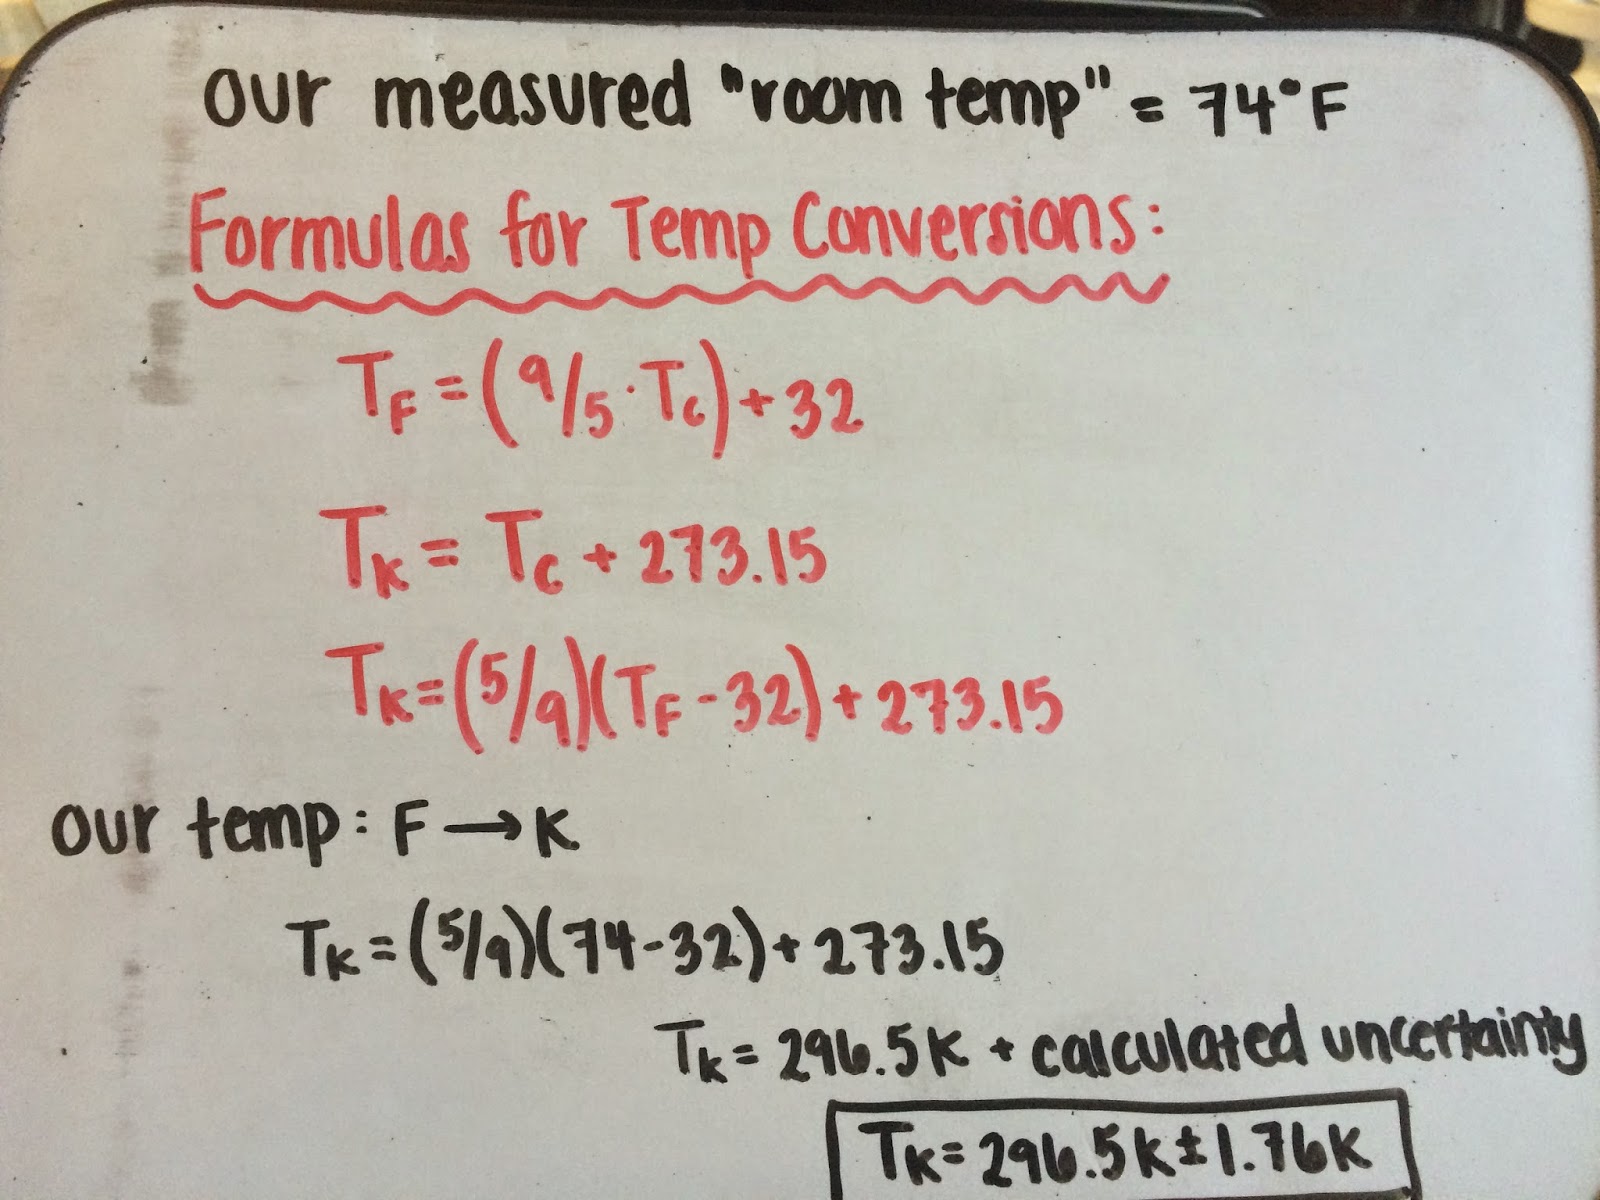 our measured "room temp" = 74°F
Formulas for Temp Conversions:
TF = (9/5 · Tc) + 32
TK = Tc + 273.15
TK = (5/9)(TF - 32) + 273.15
our temp: F → K
TK = (5/9)(74 - 32) + 273.15
TK = 296.5K + calculated uncertainty
TK = 296.5K ± 1.76K